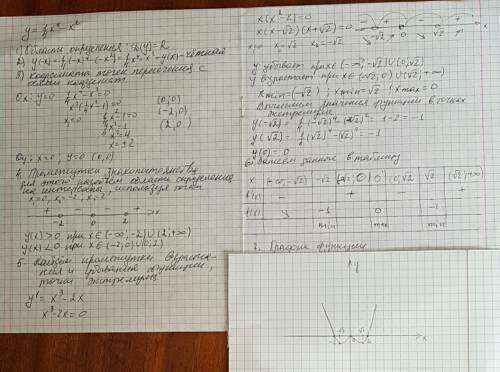 y = 1/4 x⁴ - x²
1) Область определения: D(y) = R
2) y(-x) = 1/4 (-x)⁴ - (-x)² = 1/4 x⁴ - x² = y(x) - чётная
3) координаты точек пересечения с
осями координат
Ox: y=0 1/4 x⁴ - x² = 0
x² (1/4 x² - 1) = 0
x=0 1/4 x² - 1 = 0
1/4 x² = 1
x² = 4
x = ±2
(0; 0)
(-2; 0)
(2; 0)
Oy: x=0; y=0 (0; 0)
4. Промежутки знакопостоянства
для этого разобьем область определения
на интервалы, используя точки
x₁=0, x₂=-2, x₃=2
+ - - + x
-2 0 2
y(x) > 0 при x∈(-∞; -2)∪(2; +∞)
y(x) < 0 при x∈(-2; 0)∪(0; 2)
5. Найдем промежутки возраста-
ния и убывания функции,
точки экстремума
y' = x³ - 2x
x³ - 2x = 0
x(x² - 2) = 0
x(x-√2)(x+√2) = 0
x=0 x=√2 x₃=-√2
- + - + x
-√2 0 √2
y убывает при x∈(-∞; -√2)∪(0; √2)
y возрастает при x∈(-√2; 0)∪(√2; +∞)
x min = (-√2); x min = √2; x max = 0
Вычисляем значения функции в точках
экстремума
y(-√2) = 1/4 (-√2)⁴ - (-√2)² = 1-2 = -1
y(√2) = 1/4 (√2)⁴ - (√2)² = -1
y(0) = 0
6) Занесем данные в таблицу
x (-∞; -√2) -√2 (-√2; 0) 0 (0; √2) √2 (√2; +∞)
f'(x) - + - +
f(x) ↘ -1 0 -1
min max min
7. График функции
y
-√2 √2
-2 0 2 x